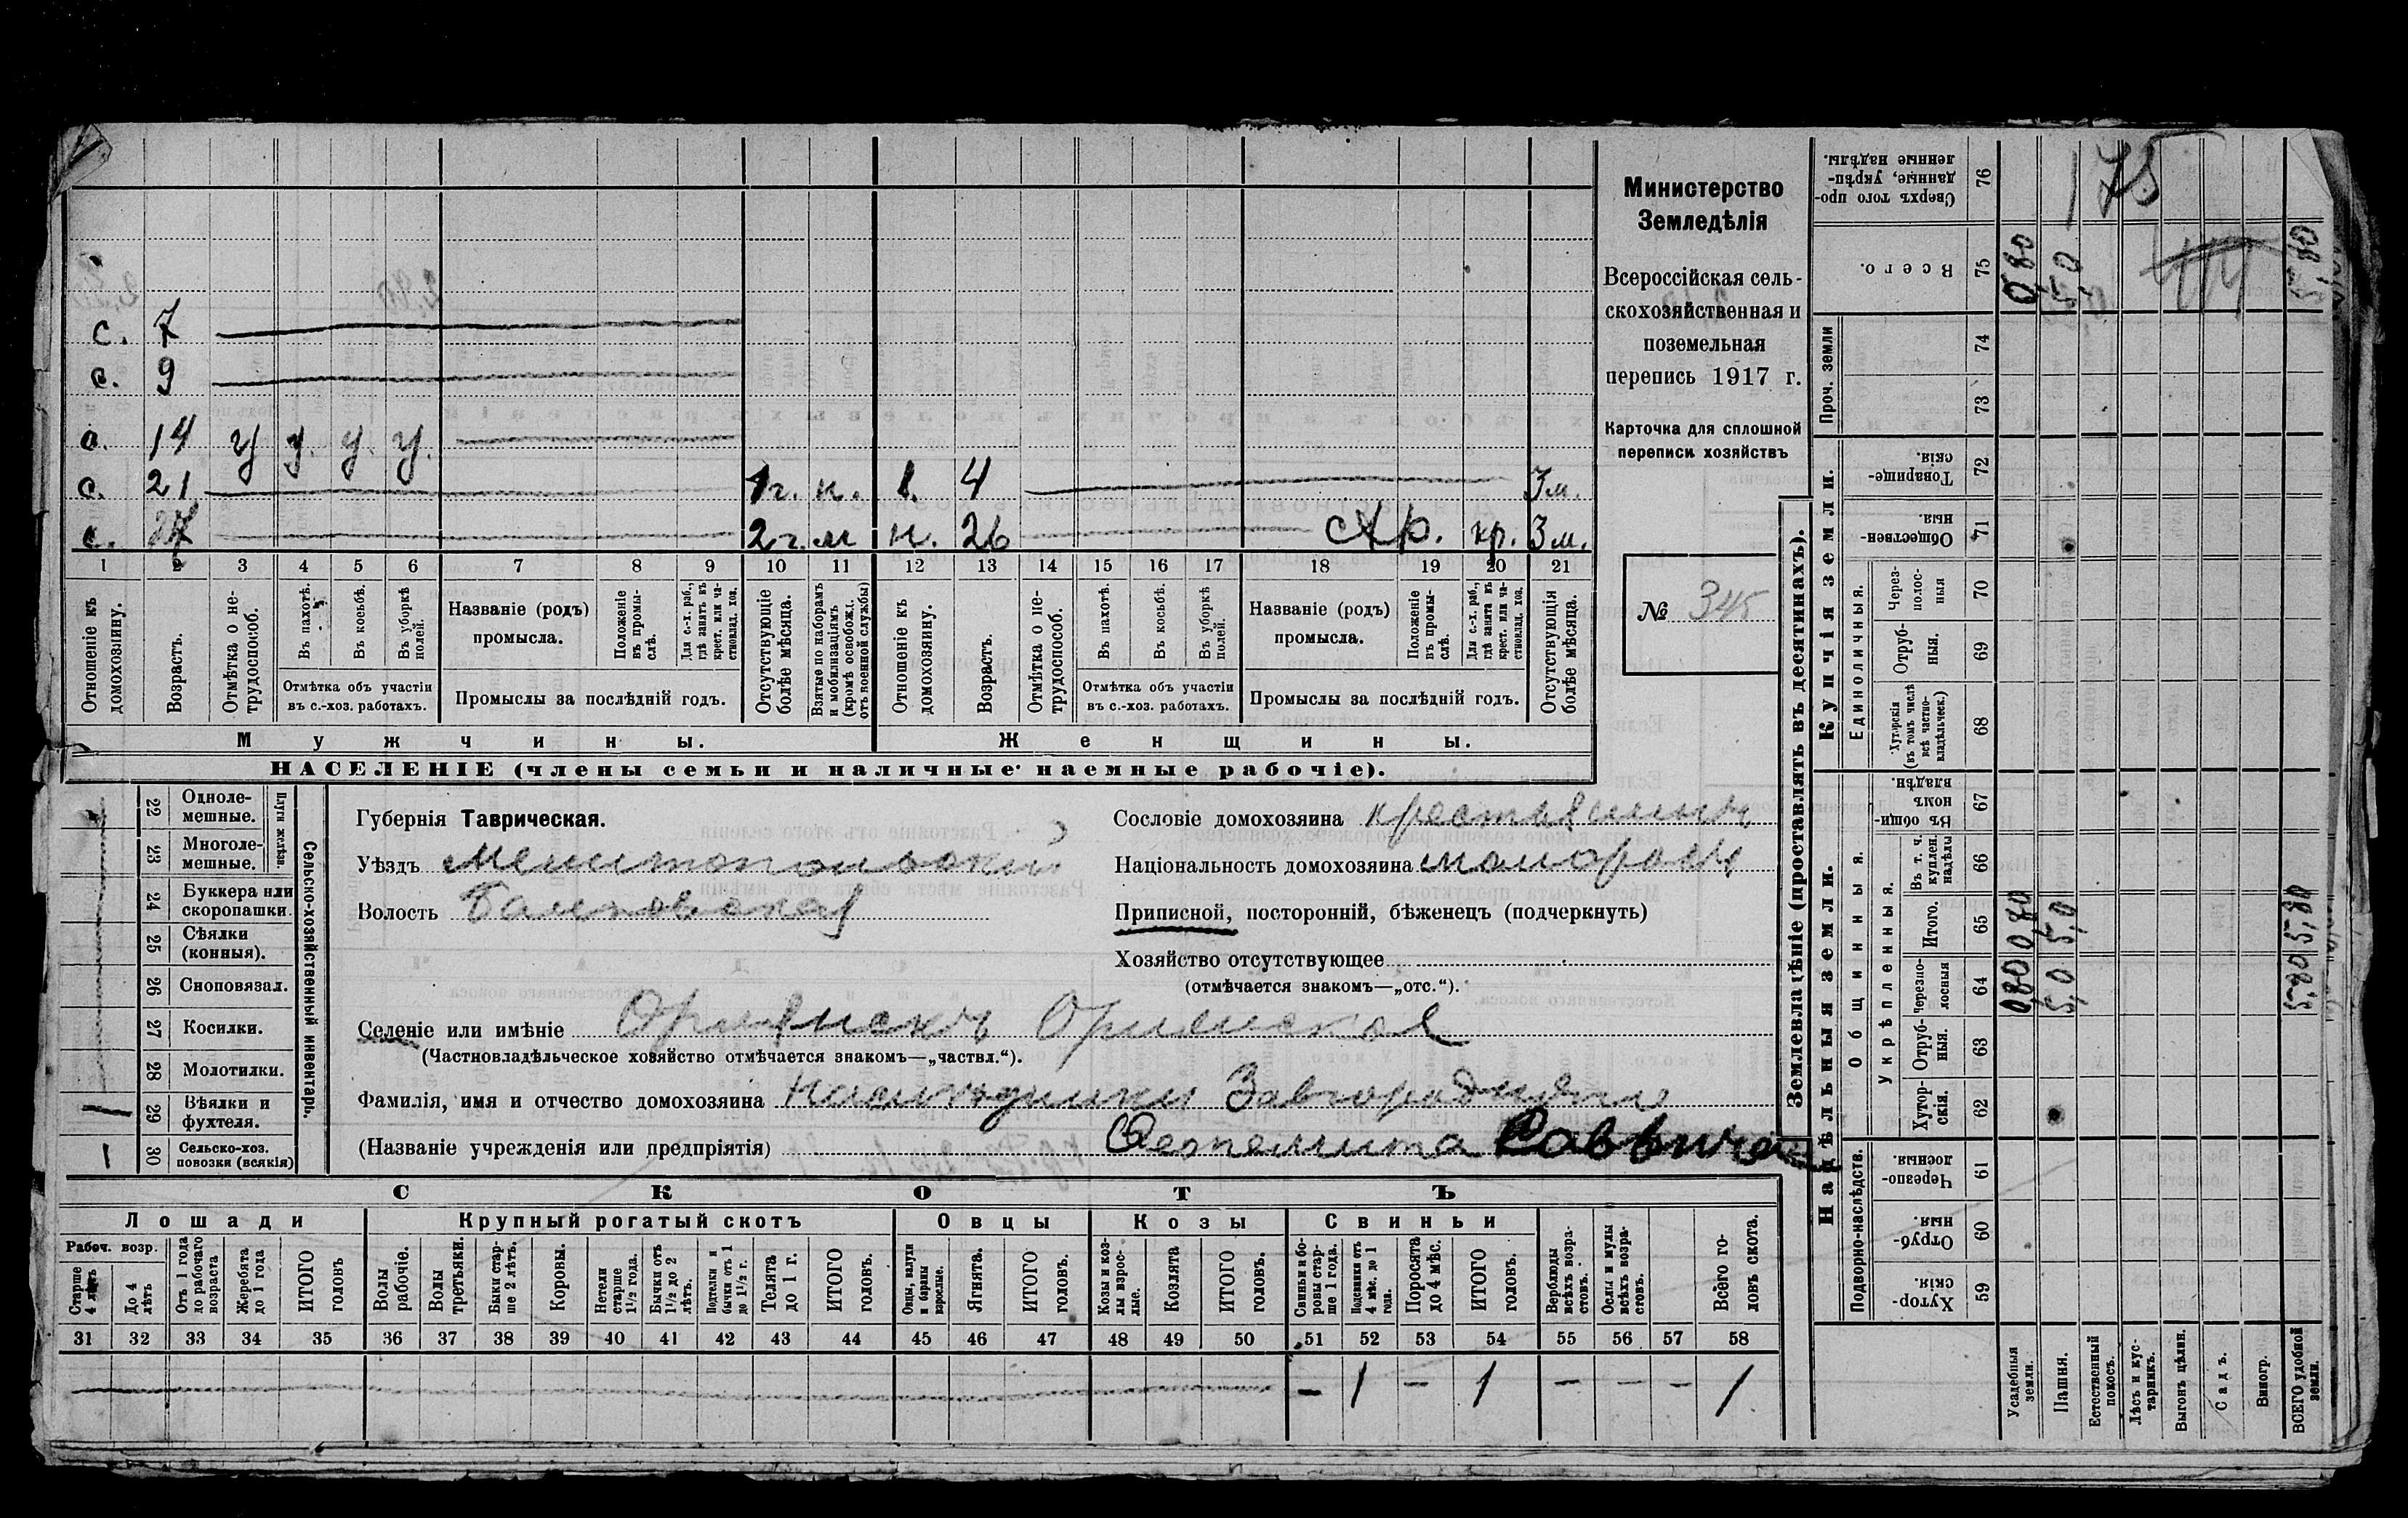 с. 7
с. 9
с. 14 у у. у у.
с. 21 1 г. н. в. 4 3 м.
с. 27 2 г. м н. 26 Кр. 3 м.
1 2 3 4 5 6 7 8 9 10 11 12 13 14 15 16 17 18 19 20 21
Отношеніе къ домохозяину.
Возрастъ.
Отмѣтка о нетрудоспособ.
Въ пахотѣ.
Въ косьбѣ.
Въ уборкѣ полей.
Отмѣтка объ участіи
въ с.-хоз. работахъ.
Названіе (родъ)
промысла.
Положеніе въ промыслѣ.
Для с.-х. раб., гдѣ занятъ въ крест. или частновлад. хоз.
Промыслы за послѣдній годъ.
Отсутствующіе болѣе мѣсяца.
Взятые по наборамъ и мобилизаціямъ (кромѣ освобожд. отъ военной службы)
Отношеніе къ домохозяину.
Возрастъ.
Отмѣтка о нетрудоспособ.
Въ пахотѣ.
Въ косьбѣ.
Въ уборкѣ полей.
Отмѣтка объ участіи
въ с.-хоз. работахъ.
Названіе (родъ)
промысла.
Положеніе въ промыслѣ.
Для с.-х. раб., гдѣ занята въ крест. или частновлад. хоз.
Промыслы за послѣдній годъ.
Отсутствующія болѣе мѣсяца.
Мужчины. Женщины.
НАСЕЛЕНІЕ (члены семьи и наличные наемные рабочіе).
Министерство
Земледѣлія
Всероссійская сель-
скохозяйственная и
поземельная
перепись 1917 г.
Карточка для сплошной
переписи хозяйствъ
№ 345
22 Одноле-
мешные.
23 Многоле-
мешные.
Плуги желѣзн.
24 Буккера или
скоропашки.
25 Сѣялки
(конныя).
26 Сноповязал.
27 Косилки.
28 Молотилки.
29 Вѣялки и
фухтеля.
1 30 Сельско-хоз.
повозки (всякія)
Сельско-хозяйственный инвентарь.
Губернія Таврическая.
Уѣздъ Мелитопольскій
Волость
Сословіе домохозяина крестьянинъ
Національность домохозяина малороссъ
Приписной, посторонній, бѣженецъ (подчеркнуть)
Хозяйство отсутствующее
(отмѣчается знакомъ—„отс.“).
Селеніе или имѣніе
(Частновладѣльческое хозяйство отмѣчается знакомъ—„частвл.“).
Фамилія, имя и отчество домохозяина
(Названіе учрежденія или предпріятія) Саввича
СКОТЪ
Лошади Крупный рогатый скотъ Овцы Козы Свиньи
Рабоч. возр.
Старше 4 лѣтъ
До 4 лѣтъ
Отъ 1 года до рабочаго возраста
Жеребята до 1 года
ИТОГО головъ
Волы рабочіе.
Волы третьяки.
Быки старше 2 лѣтъ.
Коровы.
Нетели старше 1½ года.
Бычки отъ 1½ до 2 лѣтъ.
Подтелки и бычки отъ 1 до 1½ г.
Телята до 1 г.
ИТОГО головъ.
Овцы, валухи и бараны взрослые.
Ягнята.
ИТОГО головъ.
Козы и козлы взрослые.
Козлята
ИТОГО головъ.
Свиньи и боровы старше 1 года.
Подсвинки отъ 4 мѣс. до 1 года.
Поросята до 4 мѣс.
ИТОГО головъ.
Верблюды всѣхъ возрастовъ.
Ослы и мулы всѣхъ возрастовъ.
Всего головъ скота.
31 32 33 34 35 36 37 38 39 40 41 42 43 44 45 46 47 48 49 50 51 52 53 54 55 56 57 58
– 1 – 1 – – – 1
Землевладѣніе (проставлять въ десятинахъ).
Надѣльныя земли. Купчія земли.
Проч. земли
Подворно-наслѣдств.
Общинныя.
Укрѣпленныя.
Единоличныя.
Сверхъ того проданные, укрѣпленные надѣлы. 76
Всего. 75
74
73
Товарищескія. 72
Общественныя. 71
Черезполосныя 70
Отрубныя. 69
Хуторскія (въ томъ числѣ всѣ частновладѣльческ.) 68
Въ общинномъ владѣн. 67
Въ т. ч. куплен. надѣлы 66
Итого. 65
Черезполосныя 64
Отрубныя. 63
Хуторскія. 62
Черезполосныя. 61
Отрубныя. 60
Хуторскія. 59
Усадебныя земли. 0,80 0,80 0,80
Пашня. 5,0 5,0 5,0
Естественный покосъ.
Лѣсъ и кустарникъ.
Выгонъ цѣлин.
Садъ.
Виногр.
ВСЕГО удобной земли. 5,80 5,80 5,80
175